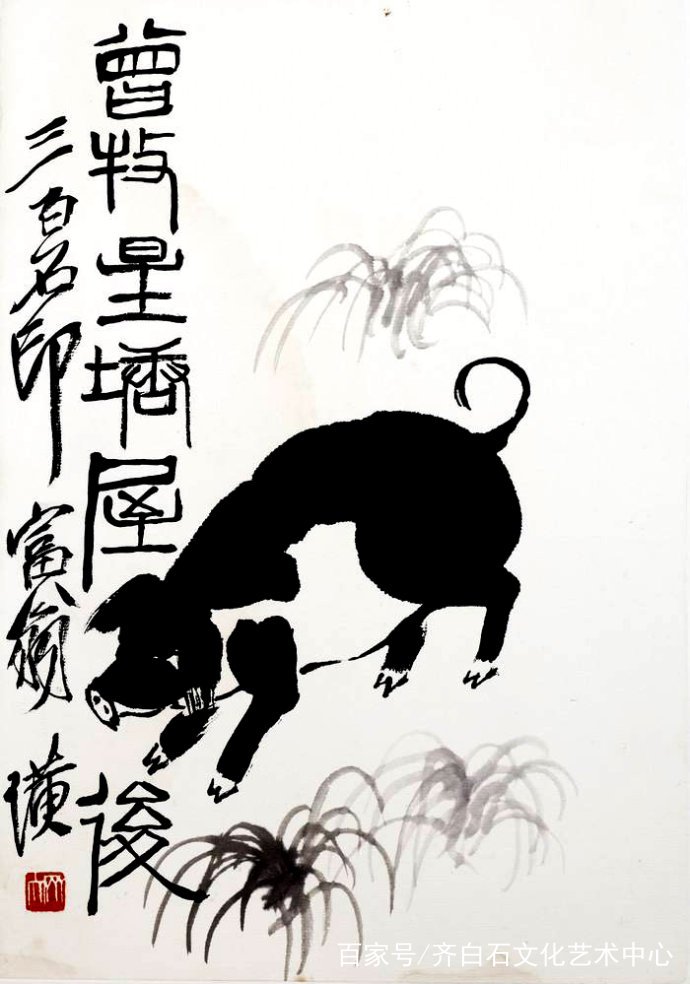 曾牧星塘屋後
三百石印富翁璜
百家号/齐白石文化艺术中心